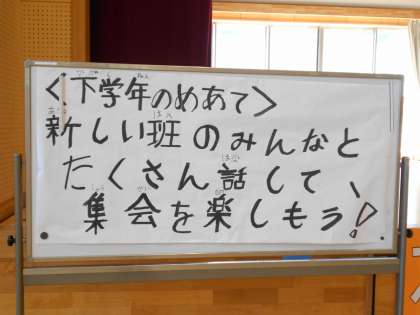 ＜下学年のめあて＞
新しい班のみんなと
たくさん話して、
集会を楽しもう！